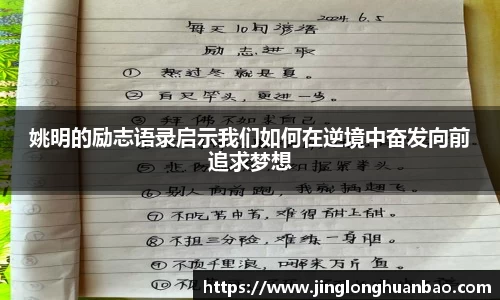 2024. 6.5
每天10句谚语
励志进取
① 熬过冬就是夏。
② 百尺竿头,更进一步。
③ 拜佛不如求自己。
姚明的励志语录启示我们如何在逆境中奋发向前
追求梦想
⑤
握紧拳头。
⑥ 别人向前跑,我就搞超飞。
⑦ 不吃苦中苦,难得甜上甜。
⑧ 不担三分险,难练一身胆。
⑨ 不顶千里浪,哪来万斤鱼。
⑩
https://www.jinglonghuanbao.com